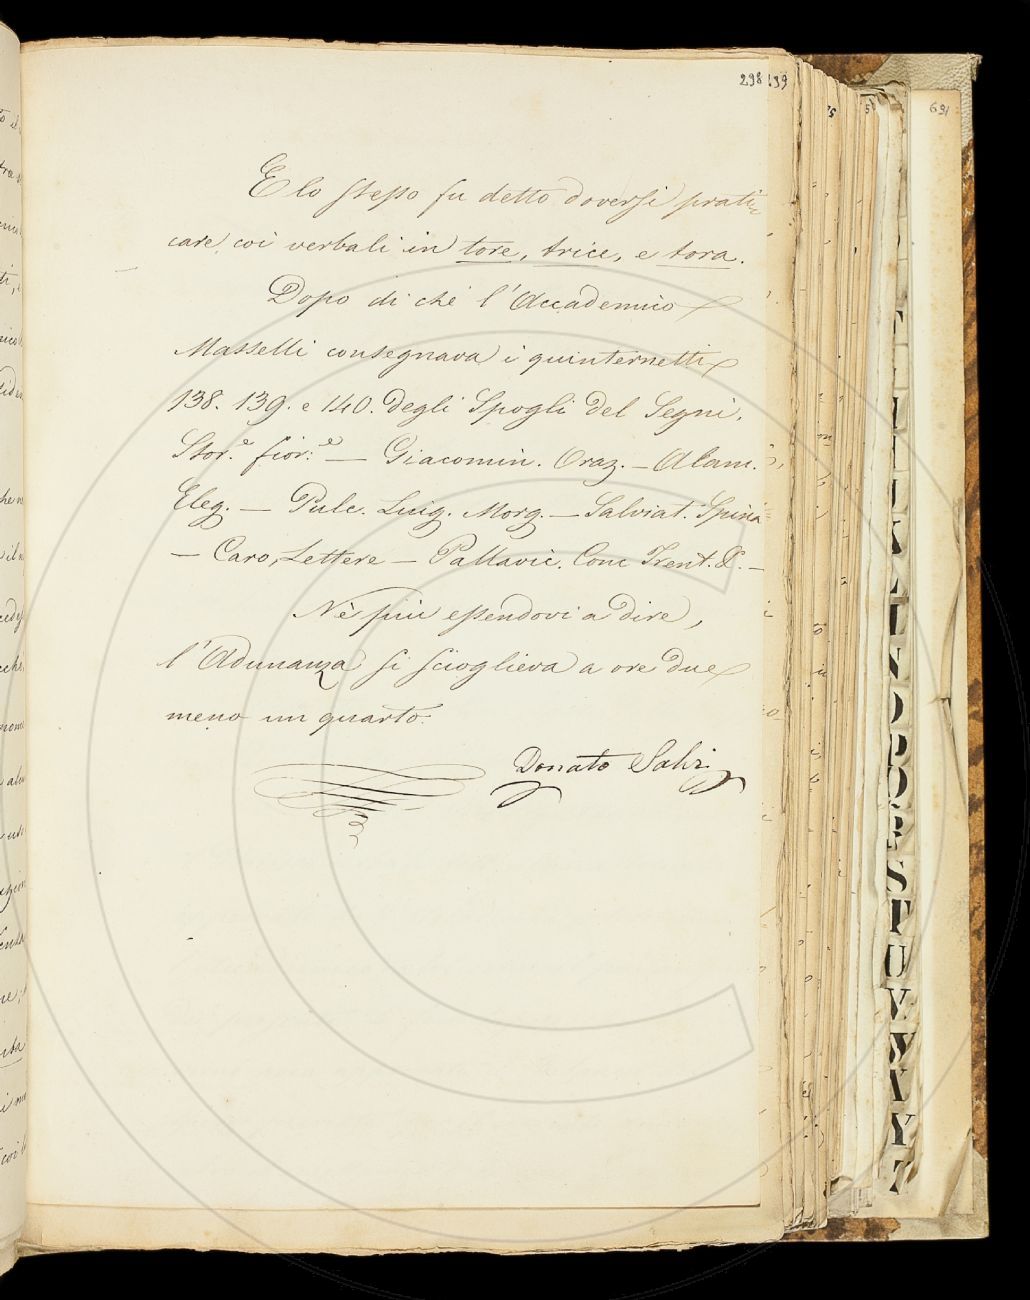 298
E lo stesso fu detto doversi prati=
care coi verbali in tore, trice, e tora.
Dopo di che l'Accademico
Masselli consegnava i quinternetti
138. 139. e 140. degli Spogli del Segni.
Stor.e fior.e — Giacomin. Oraz. — Alam.
Eleg. — Pulc. Luig. Morg. — Salviat. Spina
— Caro, Lettere — Pallavic. Conc Trent. &. —
Nè più essendovi a dire,
l'Adunanza si scioglieva a ore due
meno un quarto.
Donato Salvi
139
691
N
O
P
Q
R
S
T
U
V
W
X
Y
Z